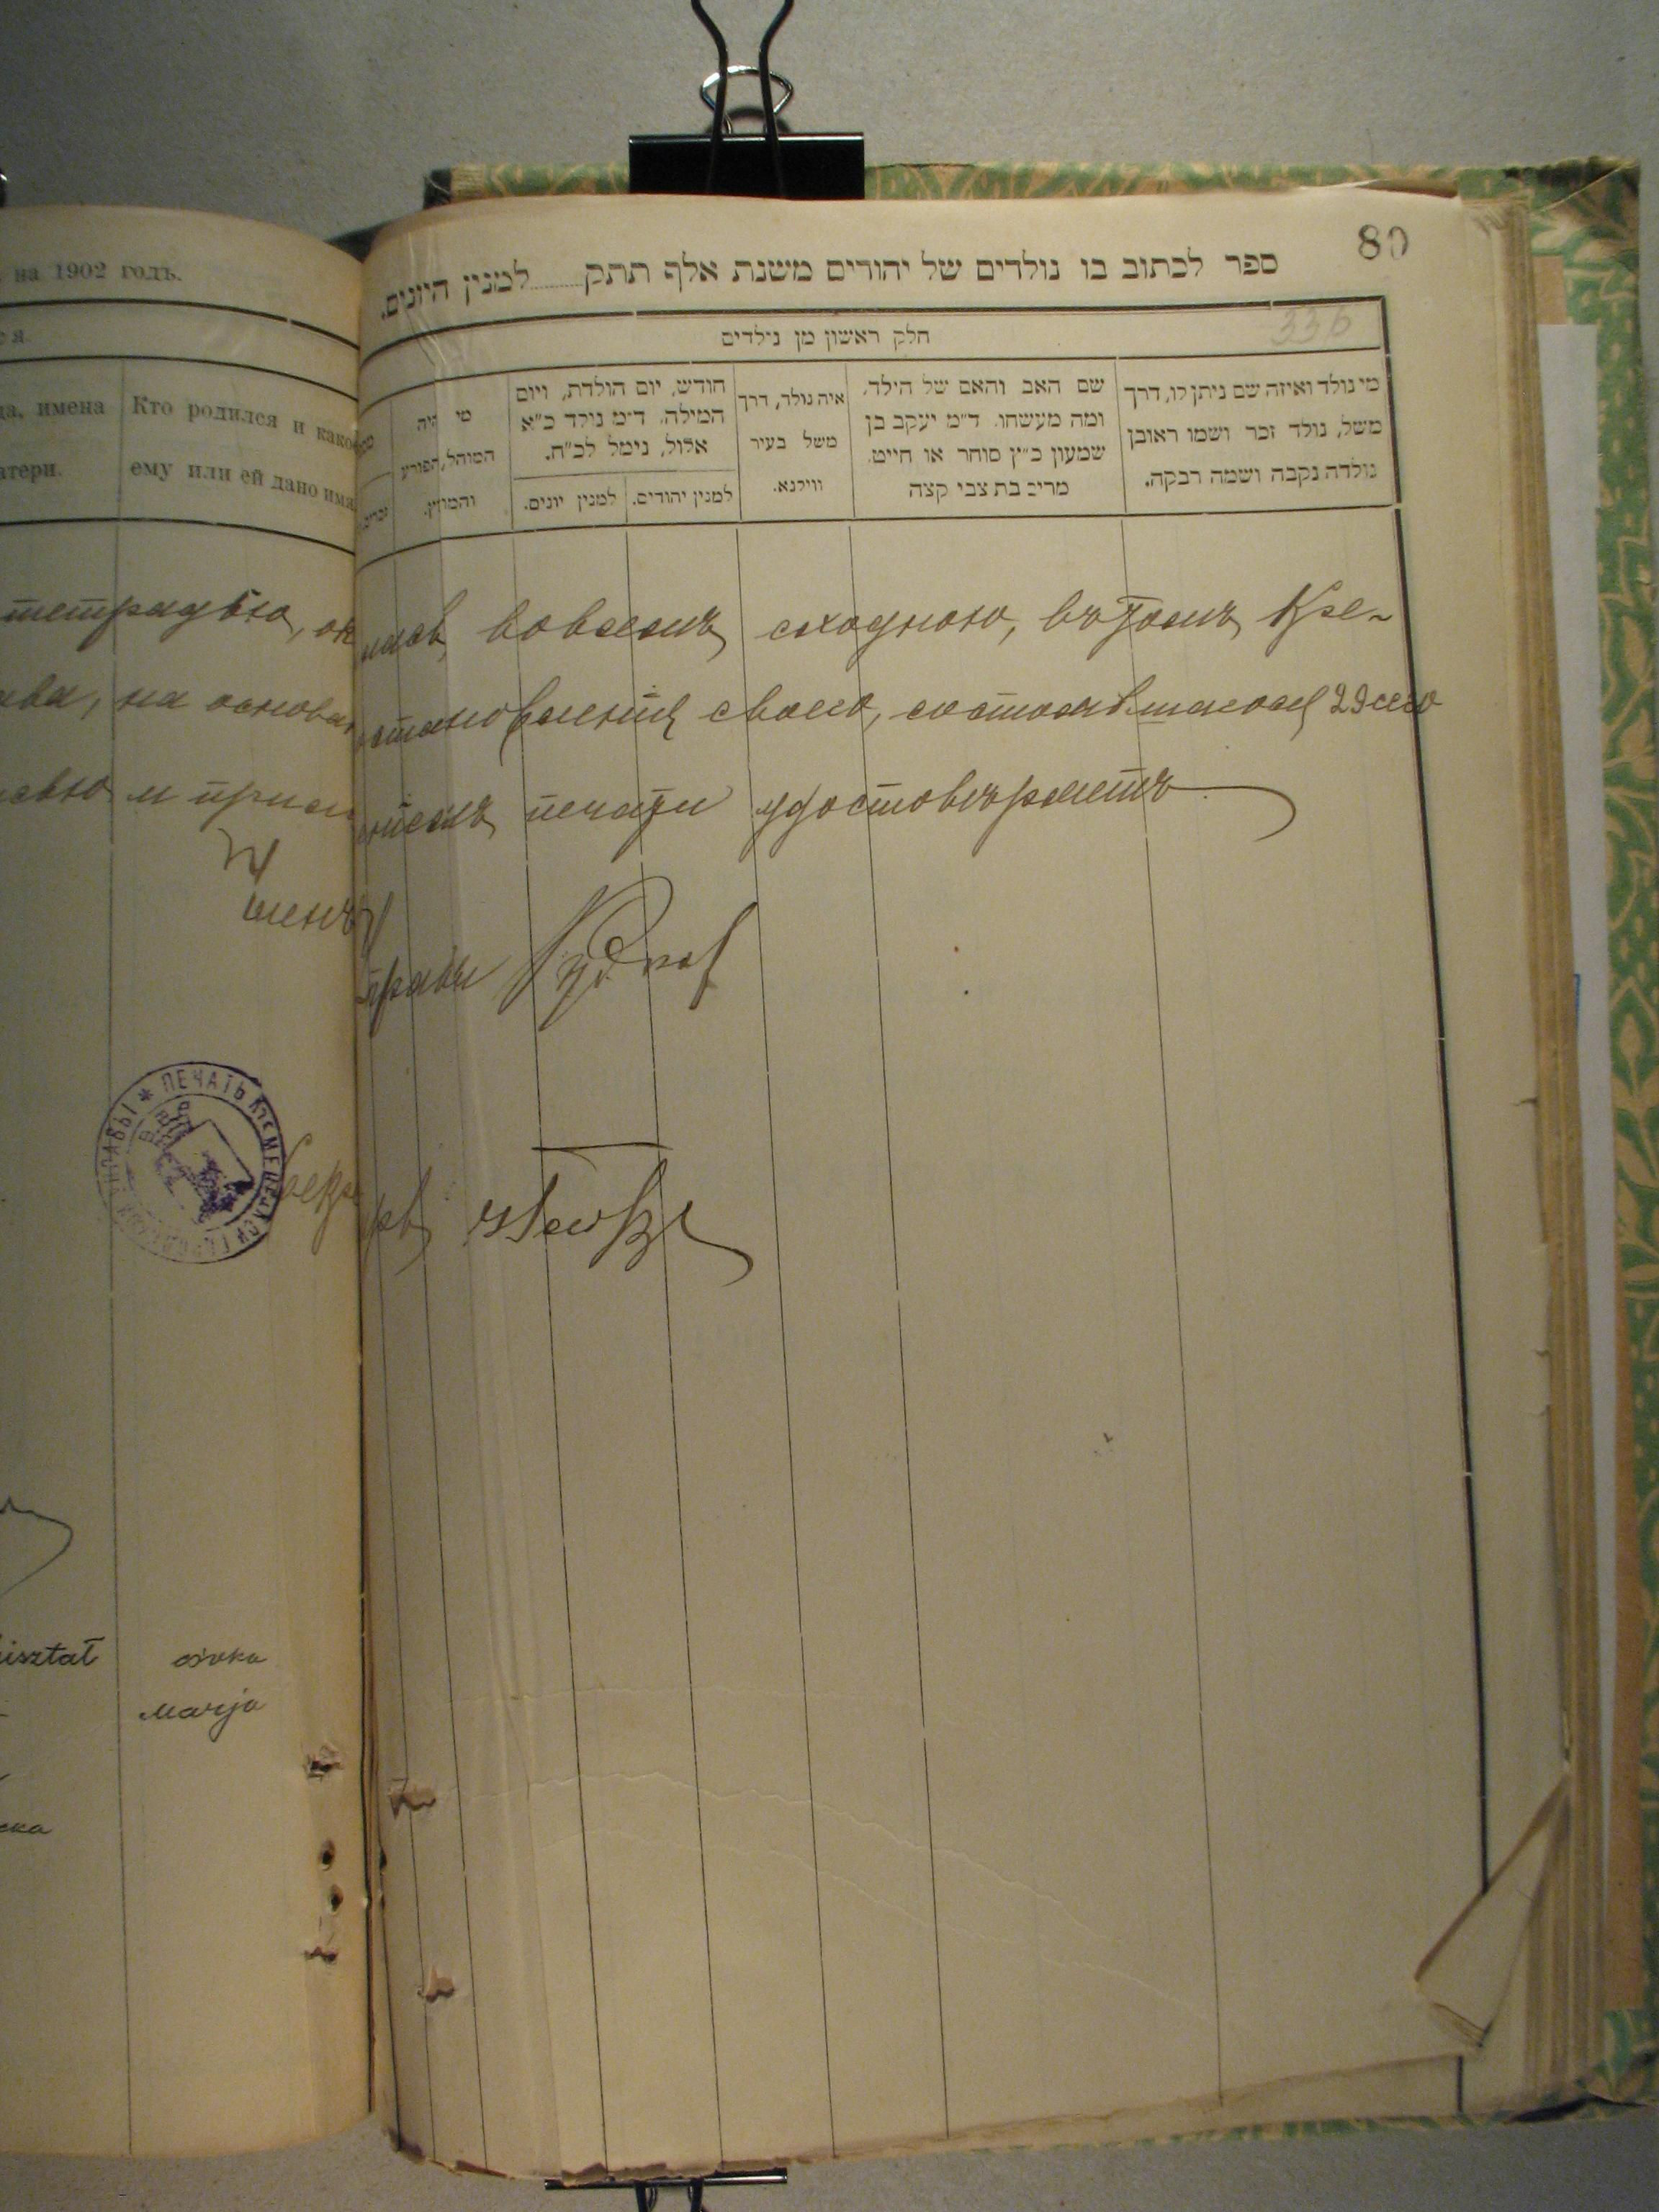 на 1902 годъ.
ся.
да, имена
атери.
Кто родился и какое
ему или ей дано имя
тетрадью,
ава, на основа
и при
члены
*ПЕЧАТЬ КРЕМЕНЕЦКОЙ ГОРОДСКОЙ УПРАВЫ
секре
isztat
marja
80
ספר לכתוב בו נולדים של יהודים משנת אלף תתק......למנין היונים.
336
חלק ראשון מן נולדים
מי נולד ואיזה שם ניתן לו, דרך
משל, נולד זכר ושמו ראובן
נולדה נקבה ושמה רבקה.
שם האב והאם של הילד,
ומה מעשהו. ד״מ יעקב בן
שמעון כ״ץ סוחר או חייט.
מרים בת צבי קצה
איה נולד, דרך
משל בעיר
ווילנא.
חודש, יום הולדת, ויום
המילה. ד״מ נולד כ״א
אלול, נימל לכ״ח.
למנין יהודים.
למנין יונים.
מי היה
המוהל, הפורע
והמוצץ.
во всемъ сходною, въ томъ Кре-
становленія своего, состоявшагося 29 сего
ніемъ печати удостовѣряетъ
правы